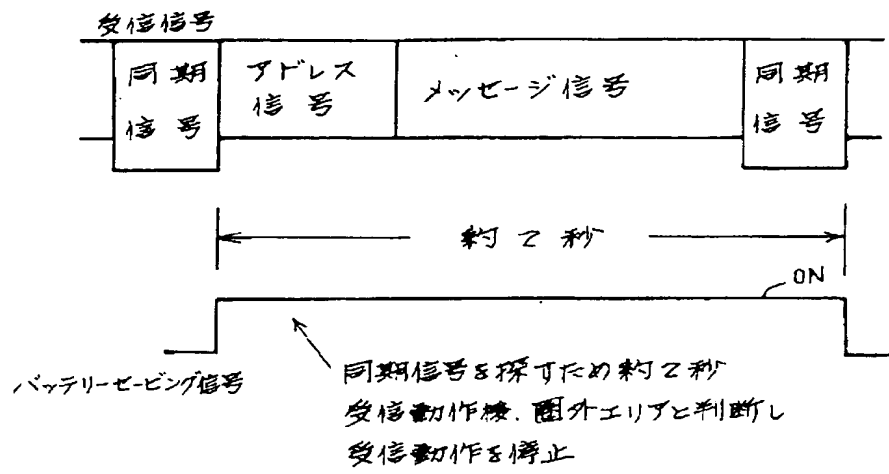 受信信号
同期
信号
アドレス
信号
メッセージ信号
同期
信号
約2秒
ON
バッテリーセービング信号
同期信号を探すため約2秒
受信動作後、圏外エリアと判断し
受信動作を停止